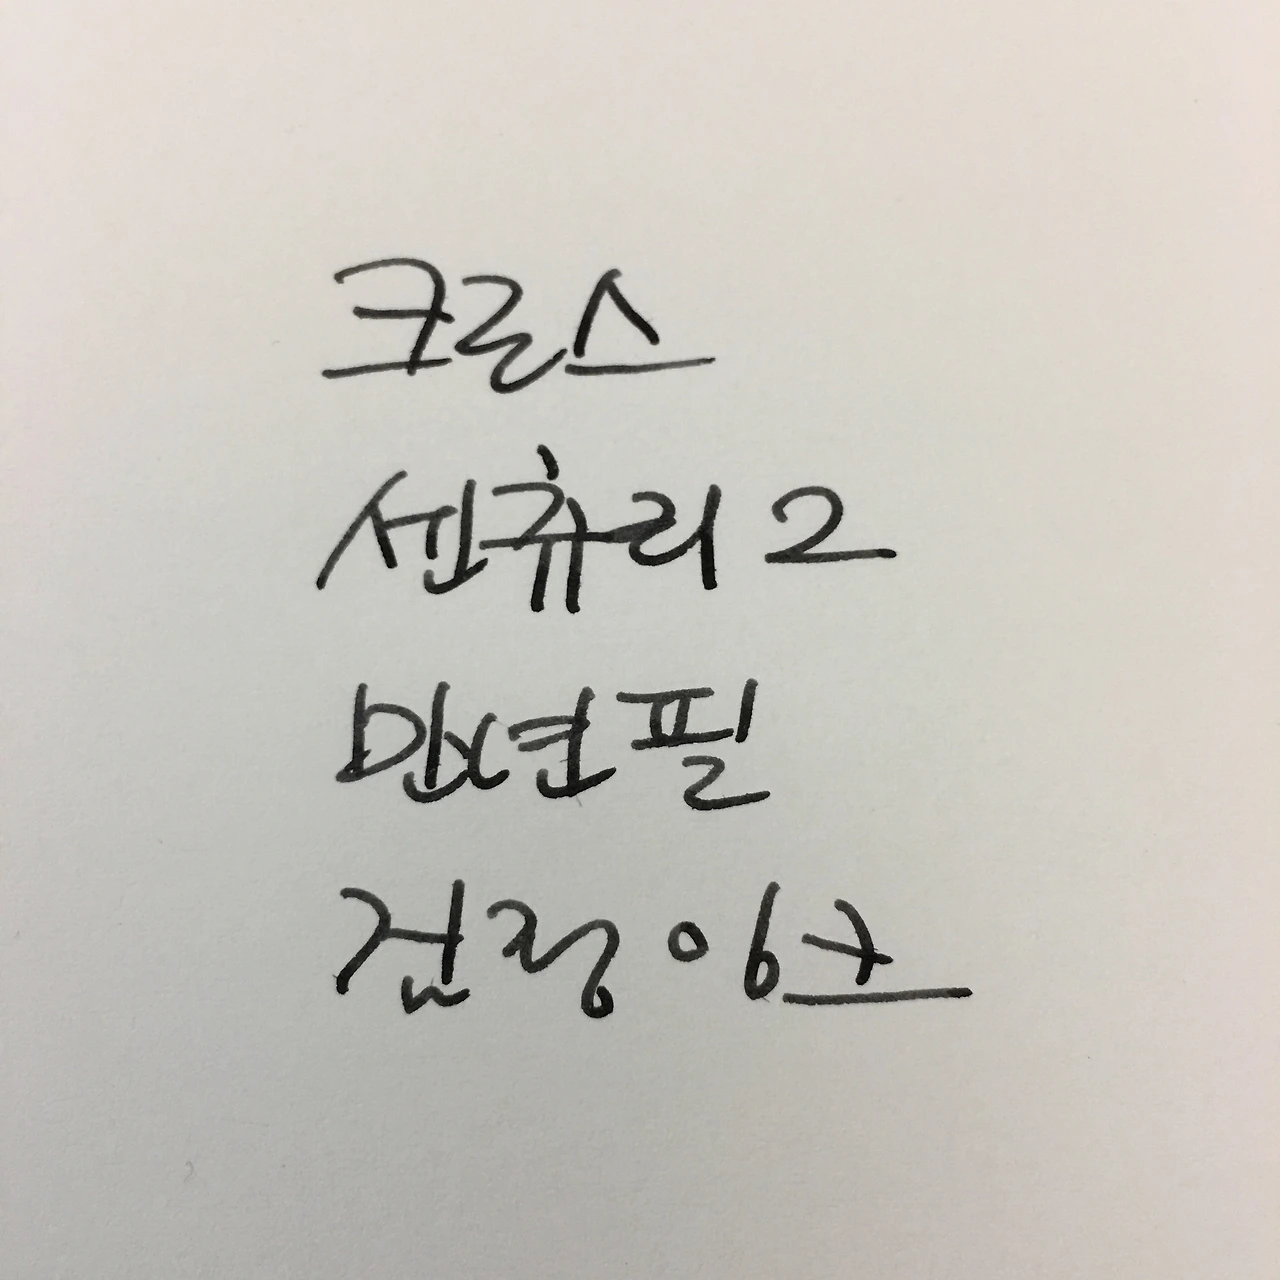 크로스
센츄리 2
만년필
검정 잉크